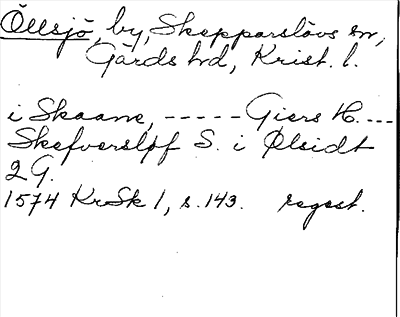 Öllsjö, by, Skepparslövs sn,
Gärds hd, Krist. l.
i Skaane, ----- Giers H. ---
Skefversløf S. i Ølsidt
2 G.
1574 KrSk 1, s. 143. regest.